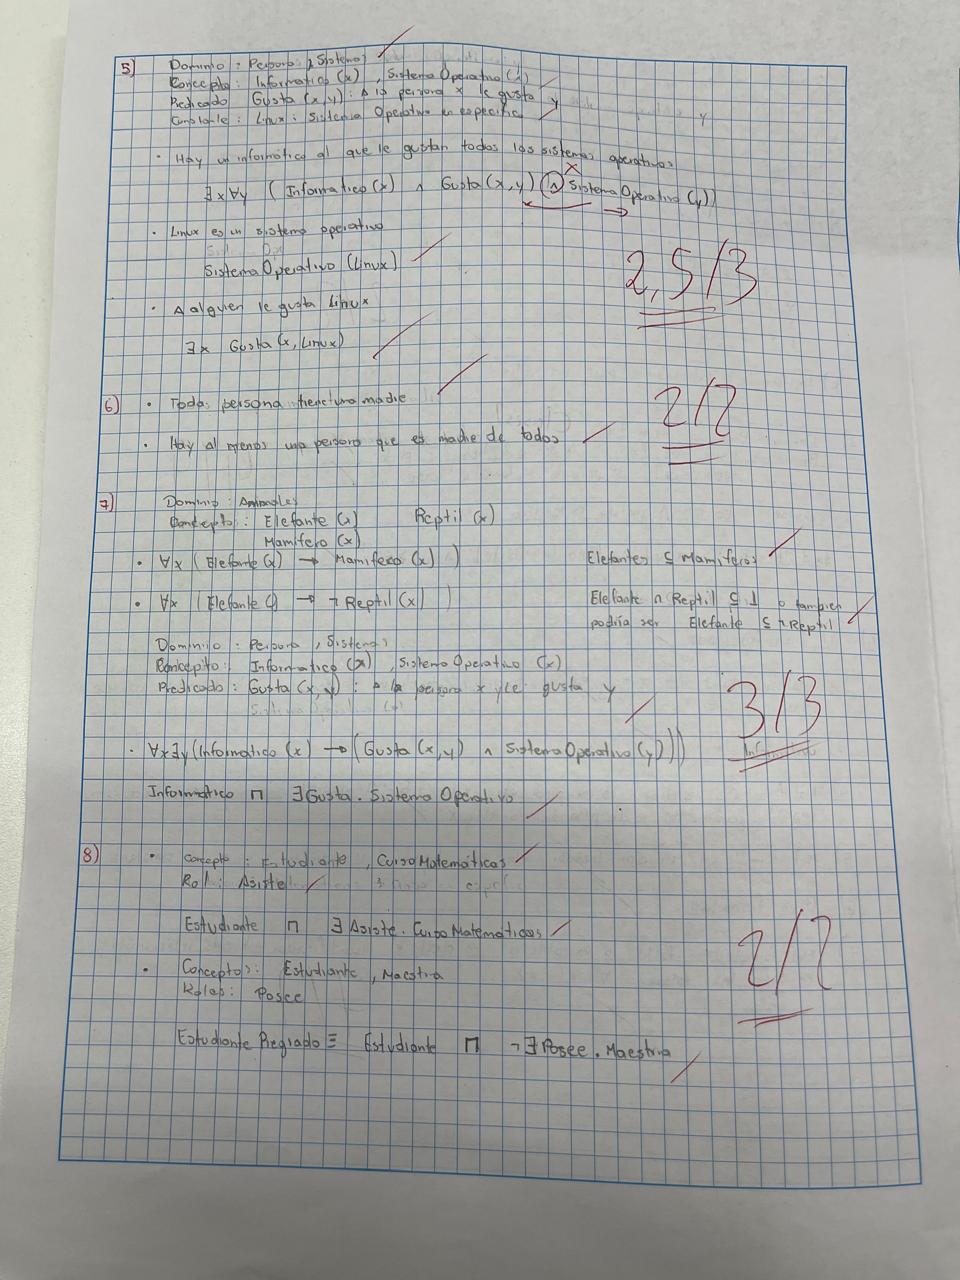 5) Dominio : Persona, Sistemas
Concepto : Informatico (x) , Sistema Operativo (x)
Predicado Gusta (x,y) : A la persona x le gusta y
Constante : Linux : Sistema Operativo en especifico
• Hay un informático al que le gustan todos los sistemas operativos
∃x∀y ( Informatico (x) ∧ Gusta (x,y) ∧ Sistema Operativo (y))
• Linux es un sistema operativo
Sistema Operativo (Linux)
2,5/3
• A alguien le gusta Linux
∃x Gusta (x, Linux)
6) • Toda persona tiene una madre
2/2
• Hay al menos una persona que es madre de todos
7) Dominio : Animales
Concepto : Elefante (x) Reptil (x)
Mamifero (x)
• ∀x ( Elefante (x) → Mamifero (x) ) Elefantes ⊆ Mamiferos
• ∀x ( Elefante () → ¬ Reptil (x) ) Elefante ∩ Reptil ⊆ ⊥ o tambien
podria ser Elefante ⊆ ¬Reptil
Dominio : Persona , Sistemas
Concepto : Informatico (x) , Sistema Operativo (x)
Predicado : Gusta (x, y) : A la persona x le gusta y
3/3
• ∀x∃y (Informatico (x) → (Gusta (x,y) ∧ Sistema Operativo (y)))
Informatico ⊓ ∃Gusta . Sistema Operativo
8) • Concepto : Estudiante , Curso Matemáticas
Rol : Asiste
Estudiante ⊓ ∃ Asiste . Curso Matematicas
2/2
• Conceptos : Estudiante , Maestria
Roles : Posee
Estudiante Pregrado ≡ Estudiante ⊓ ¬∃ Posee . Maestria